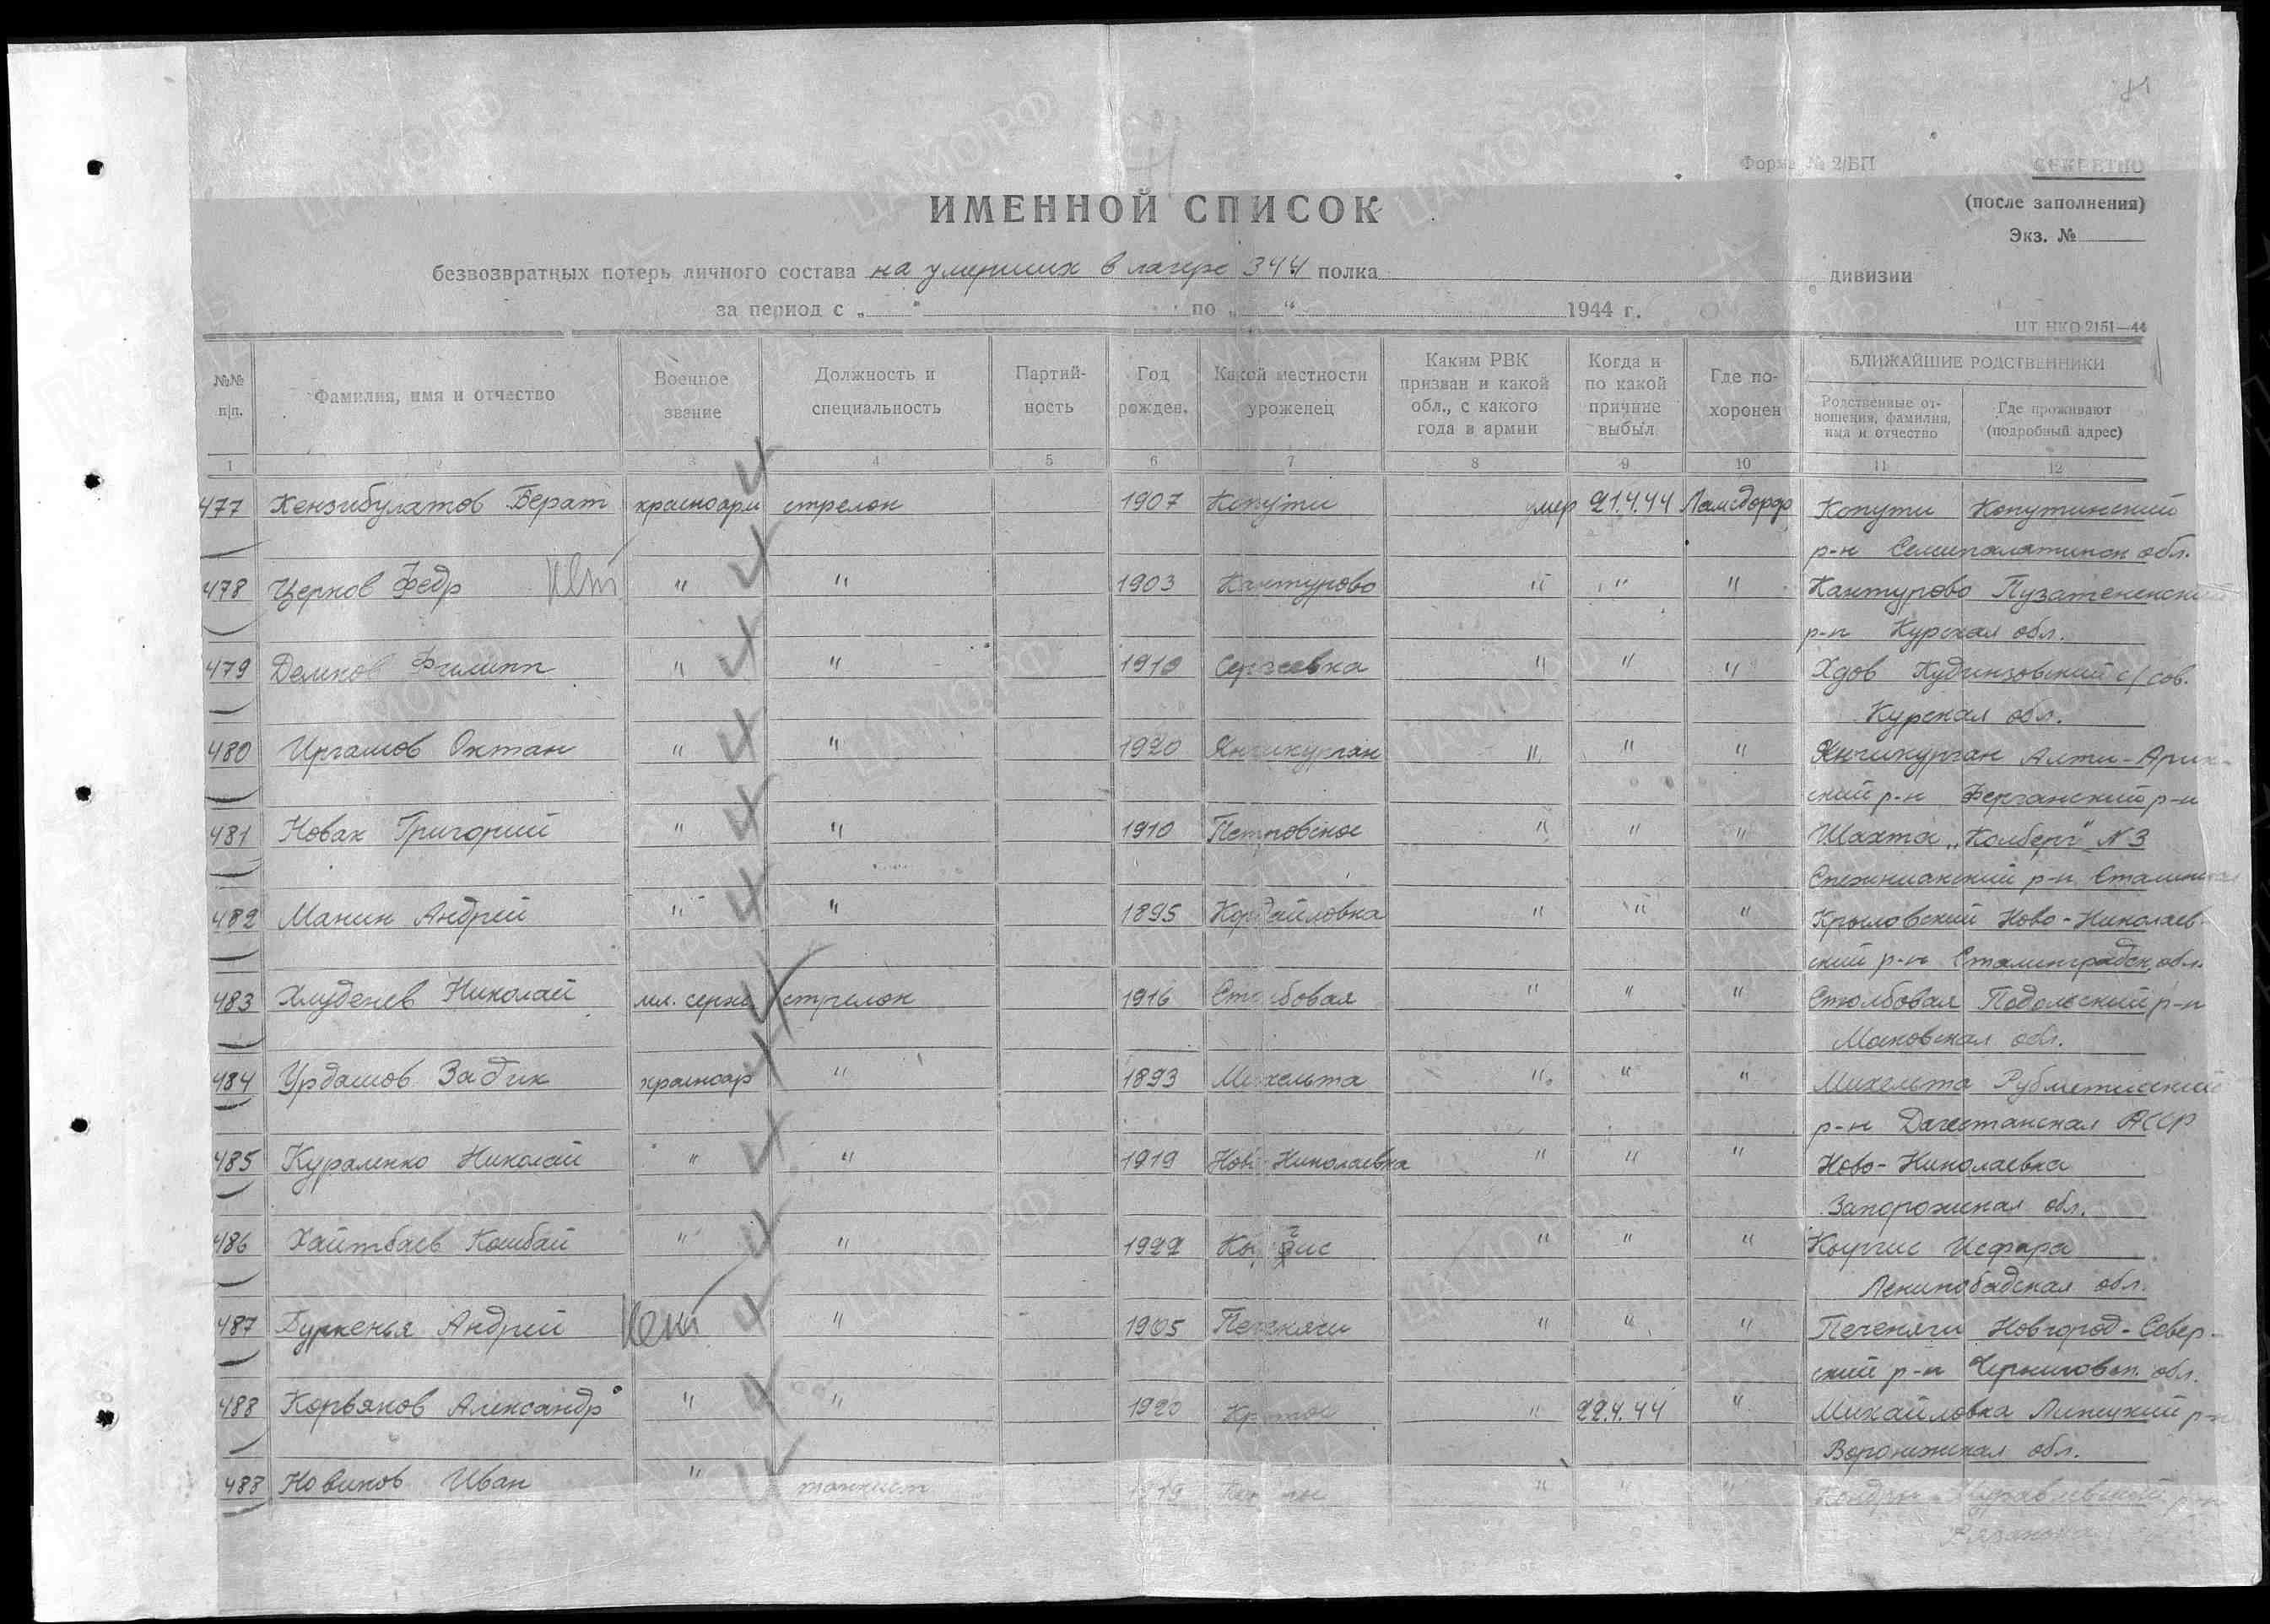 81
Форма № 2/БП
СЕКРЕТНО
(после заполнения)
Экз. №
ИМЕННОЙ СПИСОК
безвозвратных потерь личного состава на умерших в лагере 344 полка дивизии
за период с „ “ по „ “ 1944 г.
ЦТ НКО 2151—44
№№ п/п. Фамилия, имя и отчество Военное звание Должность и специальность Партий-ность Год рожден. Какой местности уроженец Каким РВК призван и какой обл., с какого года в армии Когда и по какой причине выбыл Где по-хоронен БЛИЖАЙШИЕ РОДСТВЕННИКИ
Родственные от-ношения, фамилия, имя и отчество Где проживают (подробный адрес)
1 2 3 4 5 6 7 8 9 10 11 12
477 Кензибулатов Берат красноарм стрелок 1907 Копути умер 21.4.44 Ламсдорф Копути Копутинский
р-н Семипалатинск обл.
478 Цернов Федр " " 1903 Кантурово " " " Кантурово
р-н Курская обл.
479 Демков Филипп " " 1910 Сергеевка " " " с/сов.
Курская обл.
480 Иргашов Октан " " 1920 Янгикурган " " " Янгикурган Алти-Арик-
ский р-н Ферганский р-н
481 Новак Григорий " " 1910 Петровское " " " Шахта „Колберг" N 3
р-н Сталинская
482 Манин Андрей " " 1895 " " " Крыловский Ново-Николаев-
ский р-н Сталинградск. обл.
483 Хлуденев Николай мл. серж. стрелок 1916 Столбовая " " " Столбовая Подольский р-н
Московская обл.
484 Урдашов Задик красноар " 1893 Михельта " " " Михельта
р-н Дагестанская АССР
485 Кураленко Николай " " 1919 Ново-Николаевка " " " Ново-Николаевка
Запорожская обл.
486 Хаитбаев Кошбай " " 1922 " " " Исфара
Ленинобадская обл.
487 Буркенья Андрей " 1905 Печенюги " " " Печенюги Новгород-Север-
ский р-н Черниговск. обл.
488 Корвяков Александр " " 1920 " 22.4.44 " Михайловка Липецкий р-н
Воронежская обл.
488 Новиков Иван " танкист 1919 " " "